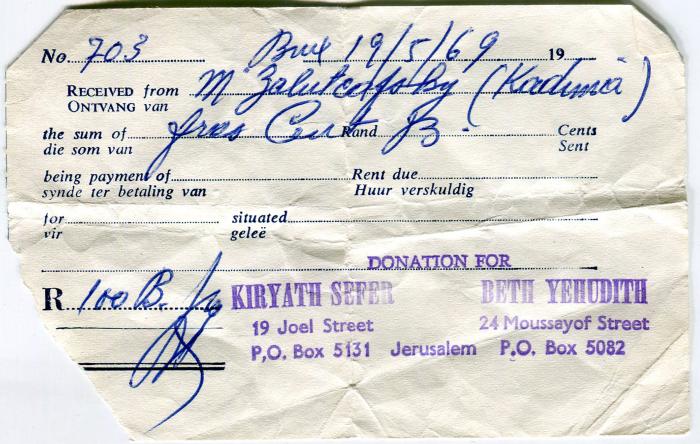 No. 703 Brux 19/5/69 19
RECEIVED from M Zalutchofsky (Kadima)
ONTVANG van
the sum of frcs Cent Rand B. - Cents
die som van Sent
being payment of Rent due
synde ter betaling van Huur verskuldig
for situated
vir geleë
DONATION FOR
R 100 B. frs KIRYATH SEFER BETH YEHUDITH
19 Joel Street 24 Moussayof Street
P.O. Box 5131 Jerusalem P.O. Box 5082